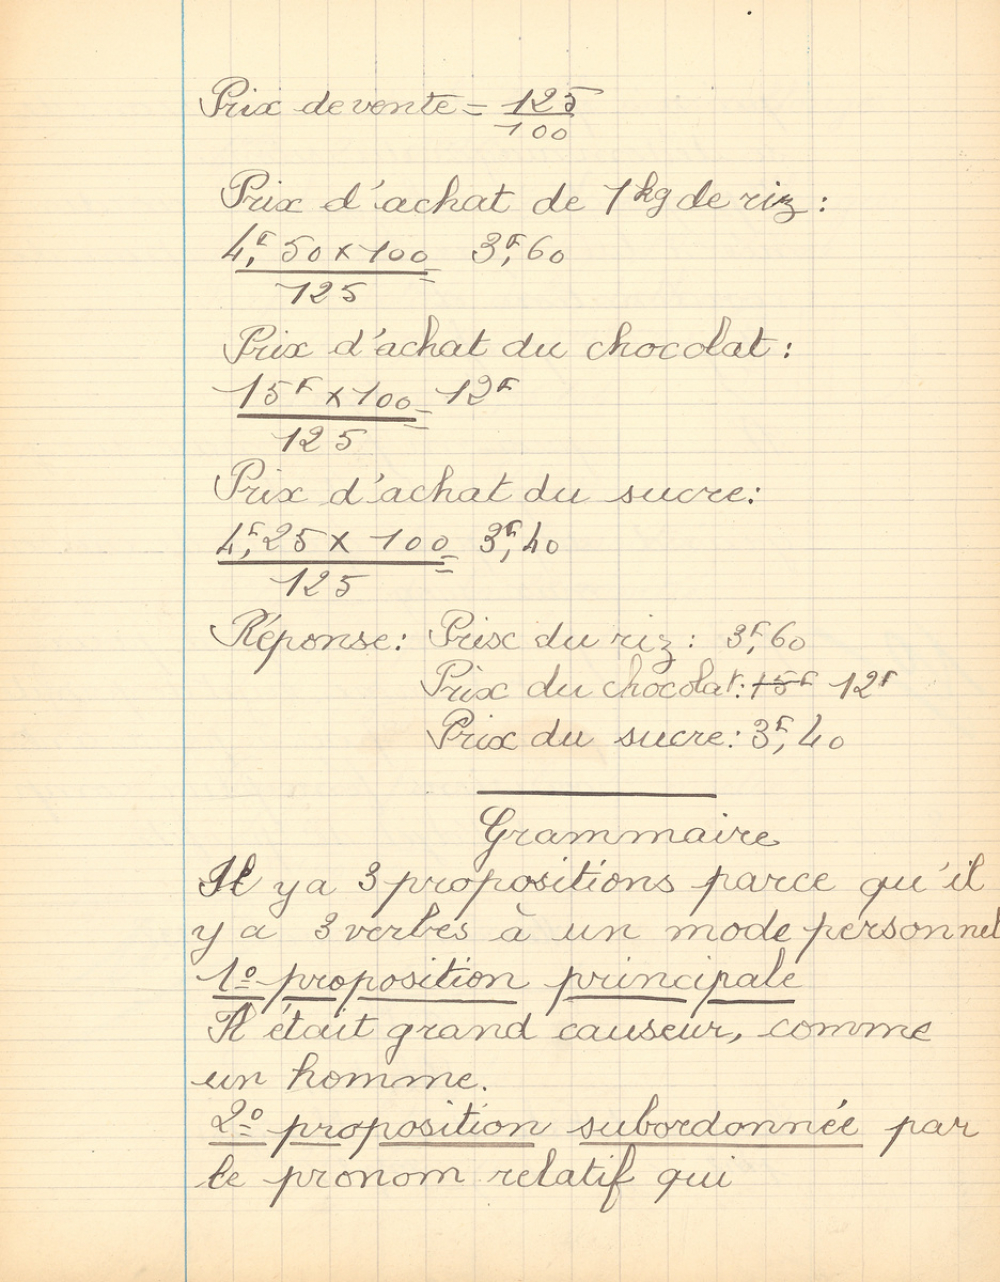 Prix de vente = 125
100
Prix d'achat de 1 kg de riz :
4,F 50 x 100 = 3,F 60
125
Prix d'achat du chocolat :
15F x 100 = 12F
125
Prix d'achat du sucre :
4,F 25 x 100 = 3,F 40
125
Réponse : Prix du riz : 3,F 60
Prix du chocolat : 15F 12F
Prix du sucre : 3,F 40
Grammaire
Il y a 3 propositions parce qu'il
y a 3 verbes à un mode personnel
1º proposition principale
Il était grand causeur, comme
un homme.
2º proposition subordonnée par
le pronom relatif qui